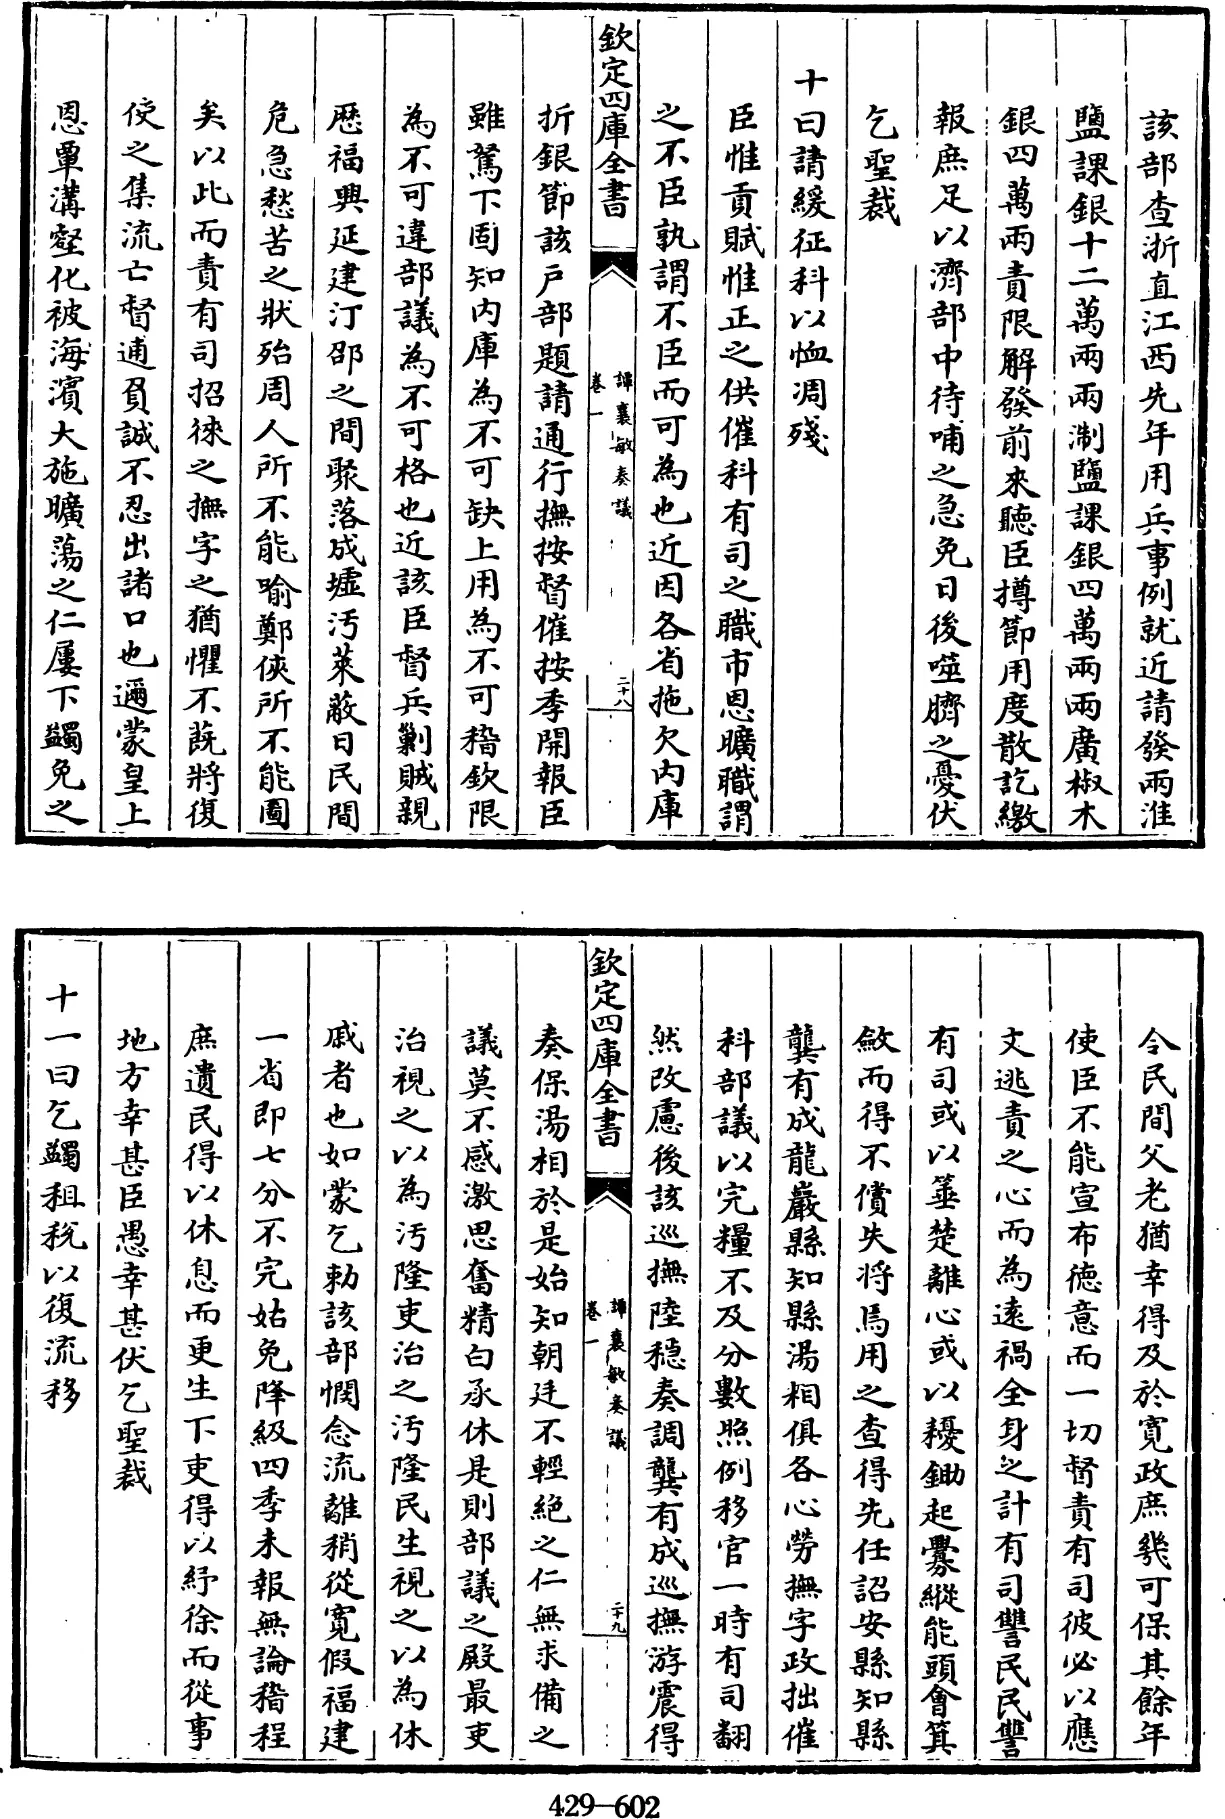 該部查浙直江西先年用兵事例就近請發兩淮
鹽課銀十二萬兩兩浙鹽課銀四萬兩兩廣椒木
銀四萬兩責限解發前來聽臣撙節用度散訖繳
報庶足以濟部中待哺之急免日後噬臍之憂伏
乞聖裁
十曰請緩征科以恤凋殘
臣惟貢賦惟正之供催科有司之職市恩曠職謂
之不臣孰謂不臣而可為也近因各省拖欠内庫
欽定四庫全書
譚襄敏奏議
卷一
二十八
折銀節該户部題請通行撫按督催按季開報臣
雖駑下固知内庫為不可缺上用為不可稽欽限
為不可違部議為不可格也近該臣督兵剿賊親
歴福興延建汀邵之間聚落成墟汚萊蔽日民間
危急愁苦之狀殆周人所不能喻鄭俠所不能圖
矣以此而責有司招徠之撫字之猶懼不既將復
使之集流亡督逋負誠不忍出諸口也邇蒙皇上
恩覃溝壑化被海濱大施曠蕩之仁屢下蠲免之
令民間父老猶幸得及於寛政庶幾可保其餘年
使臣不能宣布德意而一切督責有司彼必以應
文逃責之心而為遠禍全身之計有司讐民民讐
有司或以箠楚離心或以耰鋤起釁縱能頭會箕
斂而得不償失將焉用之查得先任詔安縣知縣
龔有成龍巖縣知縣湯相俱各心勞撫字政拙催
科部議以完糧不及分數照例移官一時有司翻
然改慮後該巡撫陸穏奏調龔有成巡撫游震得
欽定四庫全書
譚襄敏奏議
卷一
二十九
奏保湯相於是始知朝廷不輕絶之仁無求備之
議莫不感激思奮精白承休是則部議之殿最吏
治視之以為汚隆吏治之汚隆民生視之以為休
戚者也如蒙乞勅該部憫念流離稍從寛假福建
一省即七分不完姑免降級四季未報無論稽程
庶遺民得以休息而更生下吏得以紓徐而從事
地方幸甚臣愚幸甚伏乞聖裁
十一曰乞蠲租税以復流移
429—602